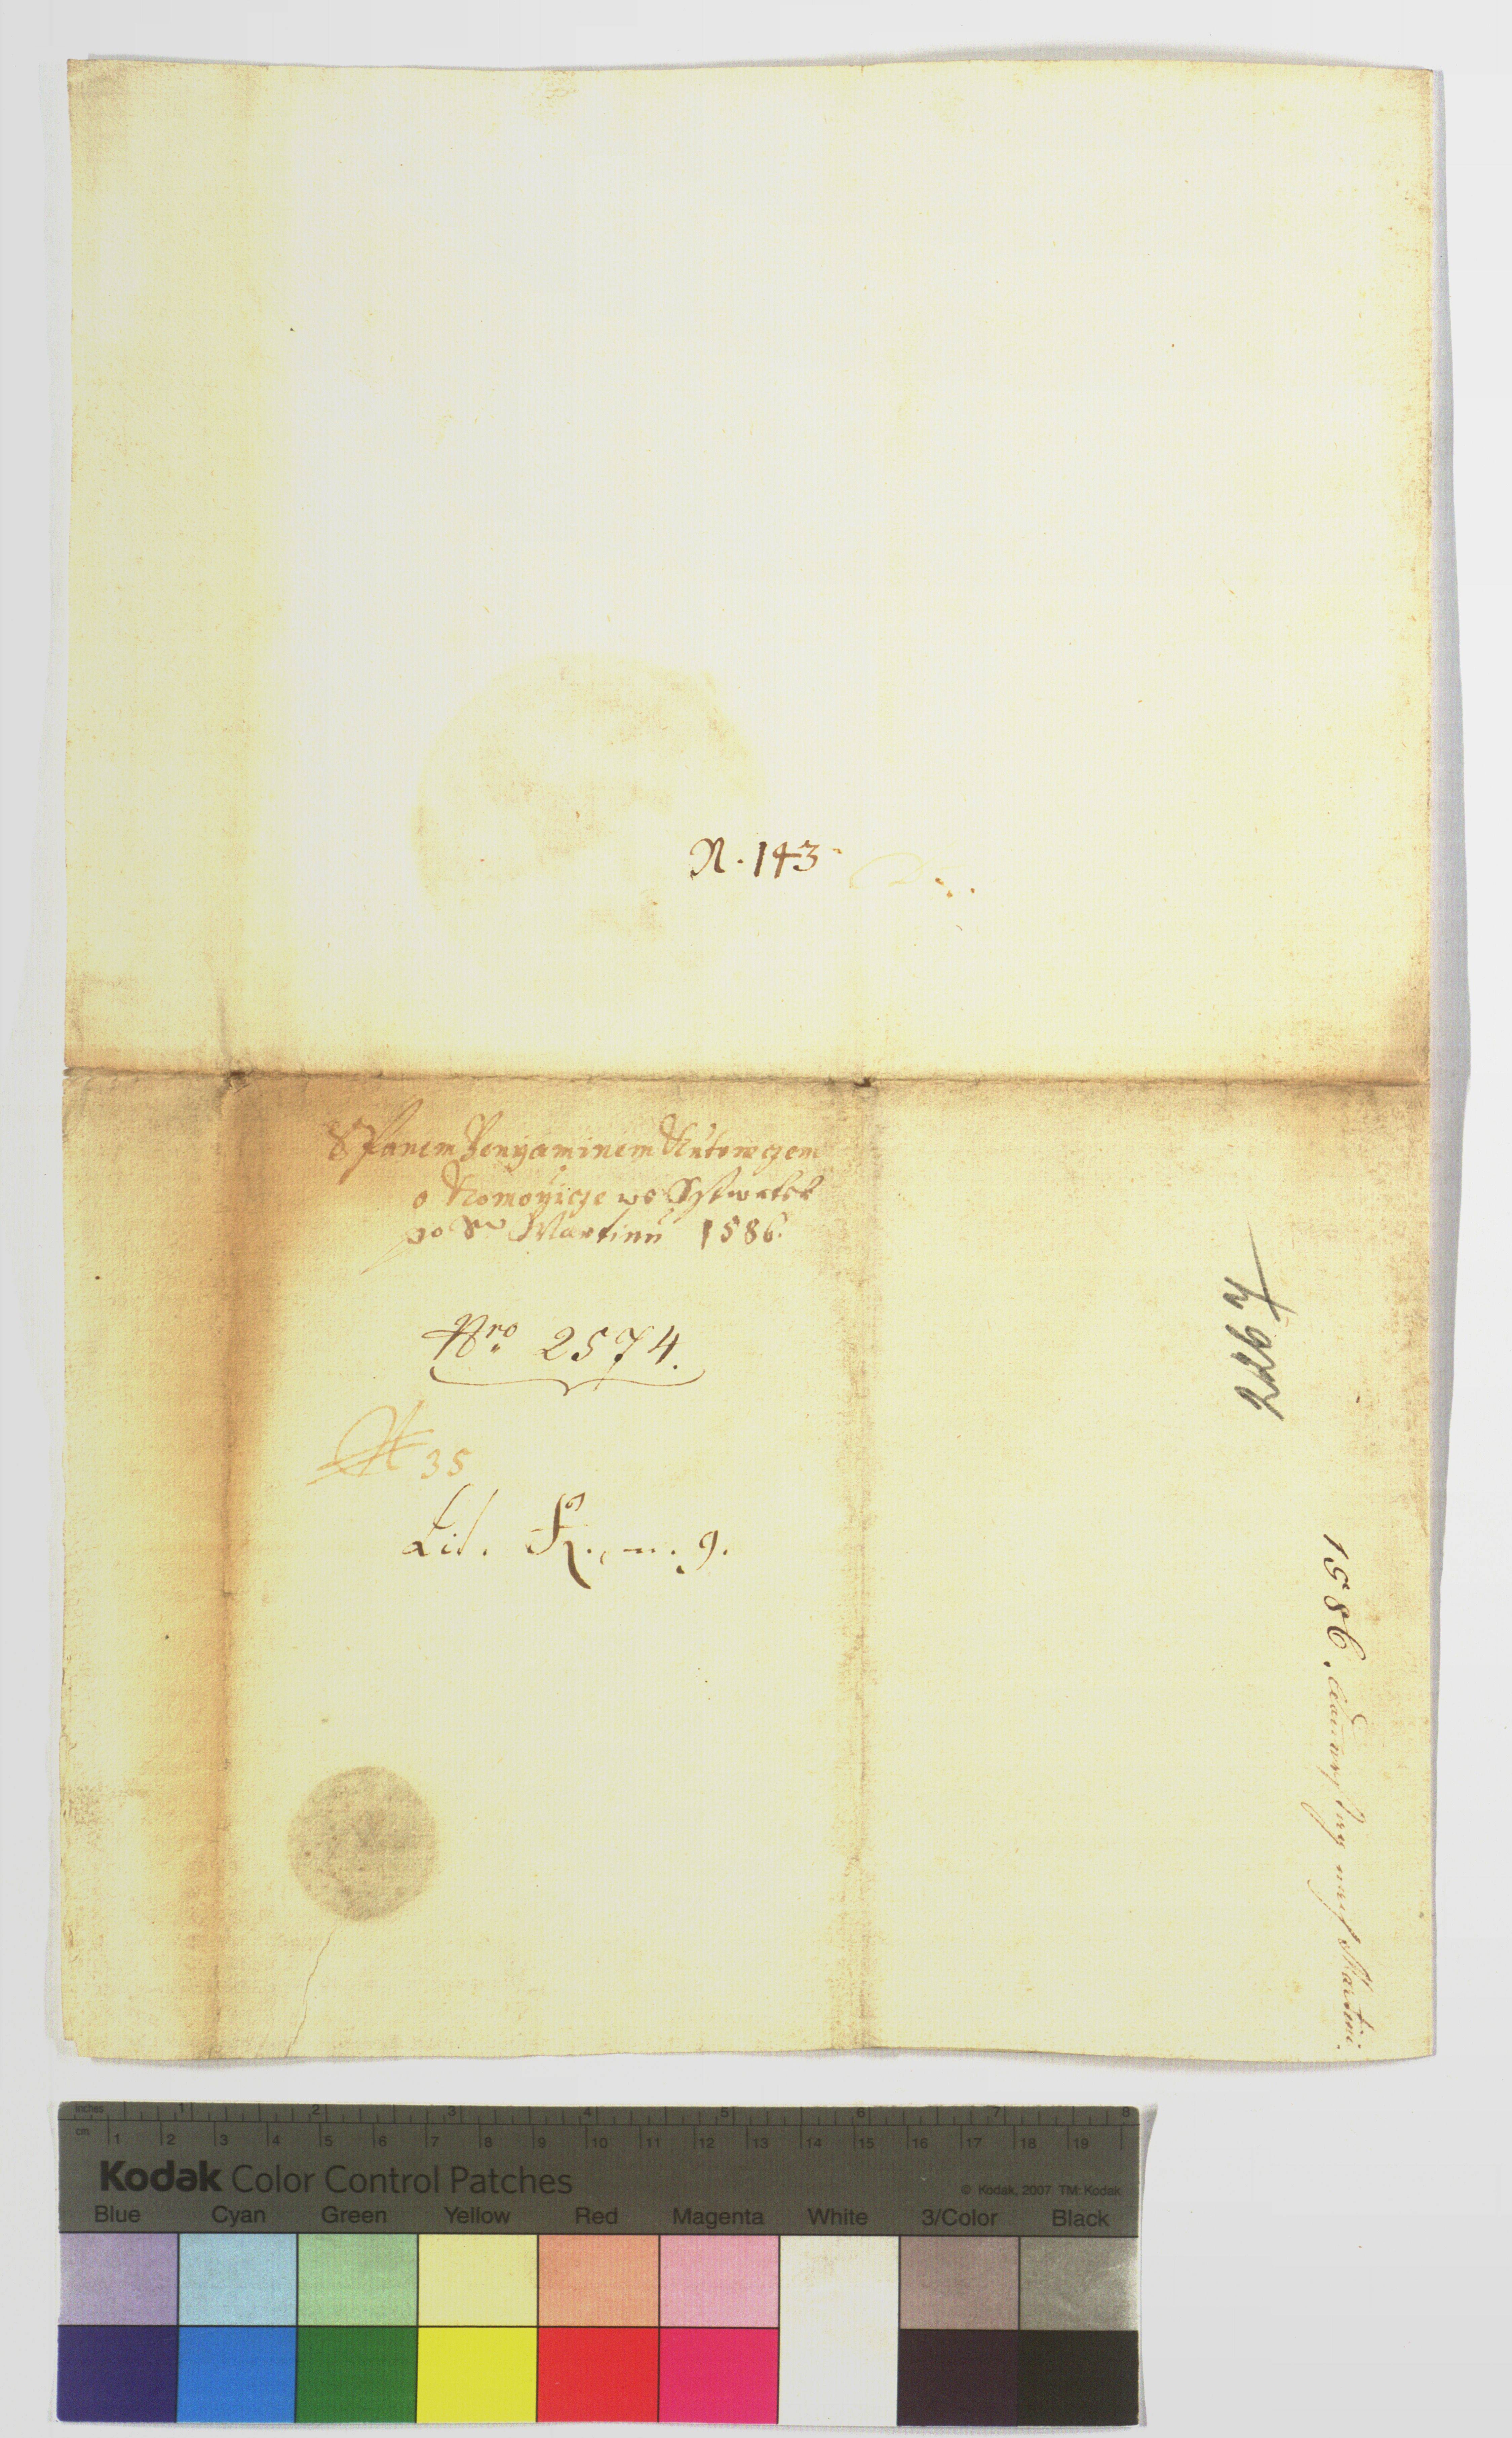 N. 143
S Panem Benyaminem Kutowczem
o Komoyicze we Cztwrtek
po Sw Martinu 1586.
Nro 2574.
N 35
Lit. K., n. 9.
2267
1586. Martini.
inches 1 2 3 4 5 6 7 8
cm 1 2 3 4 5 6 7 8 9 10 11 12 13 14 15 16 17 18 19
Kodak Color Control Patches
© Kodak, 2007 TM: Kodak
Blue Cyan Green Yellow Red Magenta White 3/Color Black